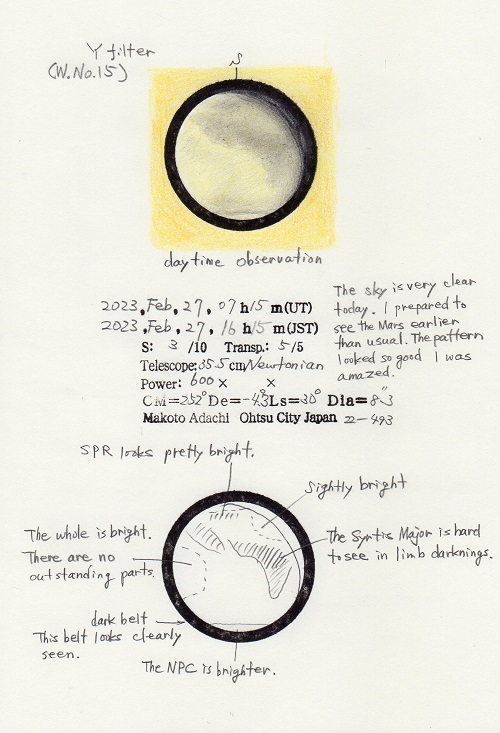 Y filter
(W.No.15)
S
daytime observation
2023,Feb,27,07h15m(UT)
2023,Feb,27,16h15m(JST)
S: 3 /10 Transp.: 5/5
Telescope:35.5cm/Newtonian
Power: 600× ×
CM=252°De=-4.3Ls=30°Dia=8"3
Makoto Adachi Ohtsu City Japan 22-493
The sky is very clear
today. I prepared to
see the Mars earlier
than usual. The pattern
looked so good I was
amazed.
SPR looks pretty bright.
Sightly bright
The whole is bright.
There are no
outstanding parts.
The Syrtis Major is hard
to see in limb darknings.
dark belt
This belt looks clearly
seen.
The NPC is brighter.